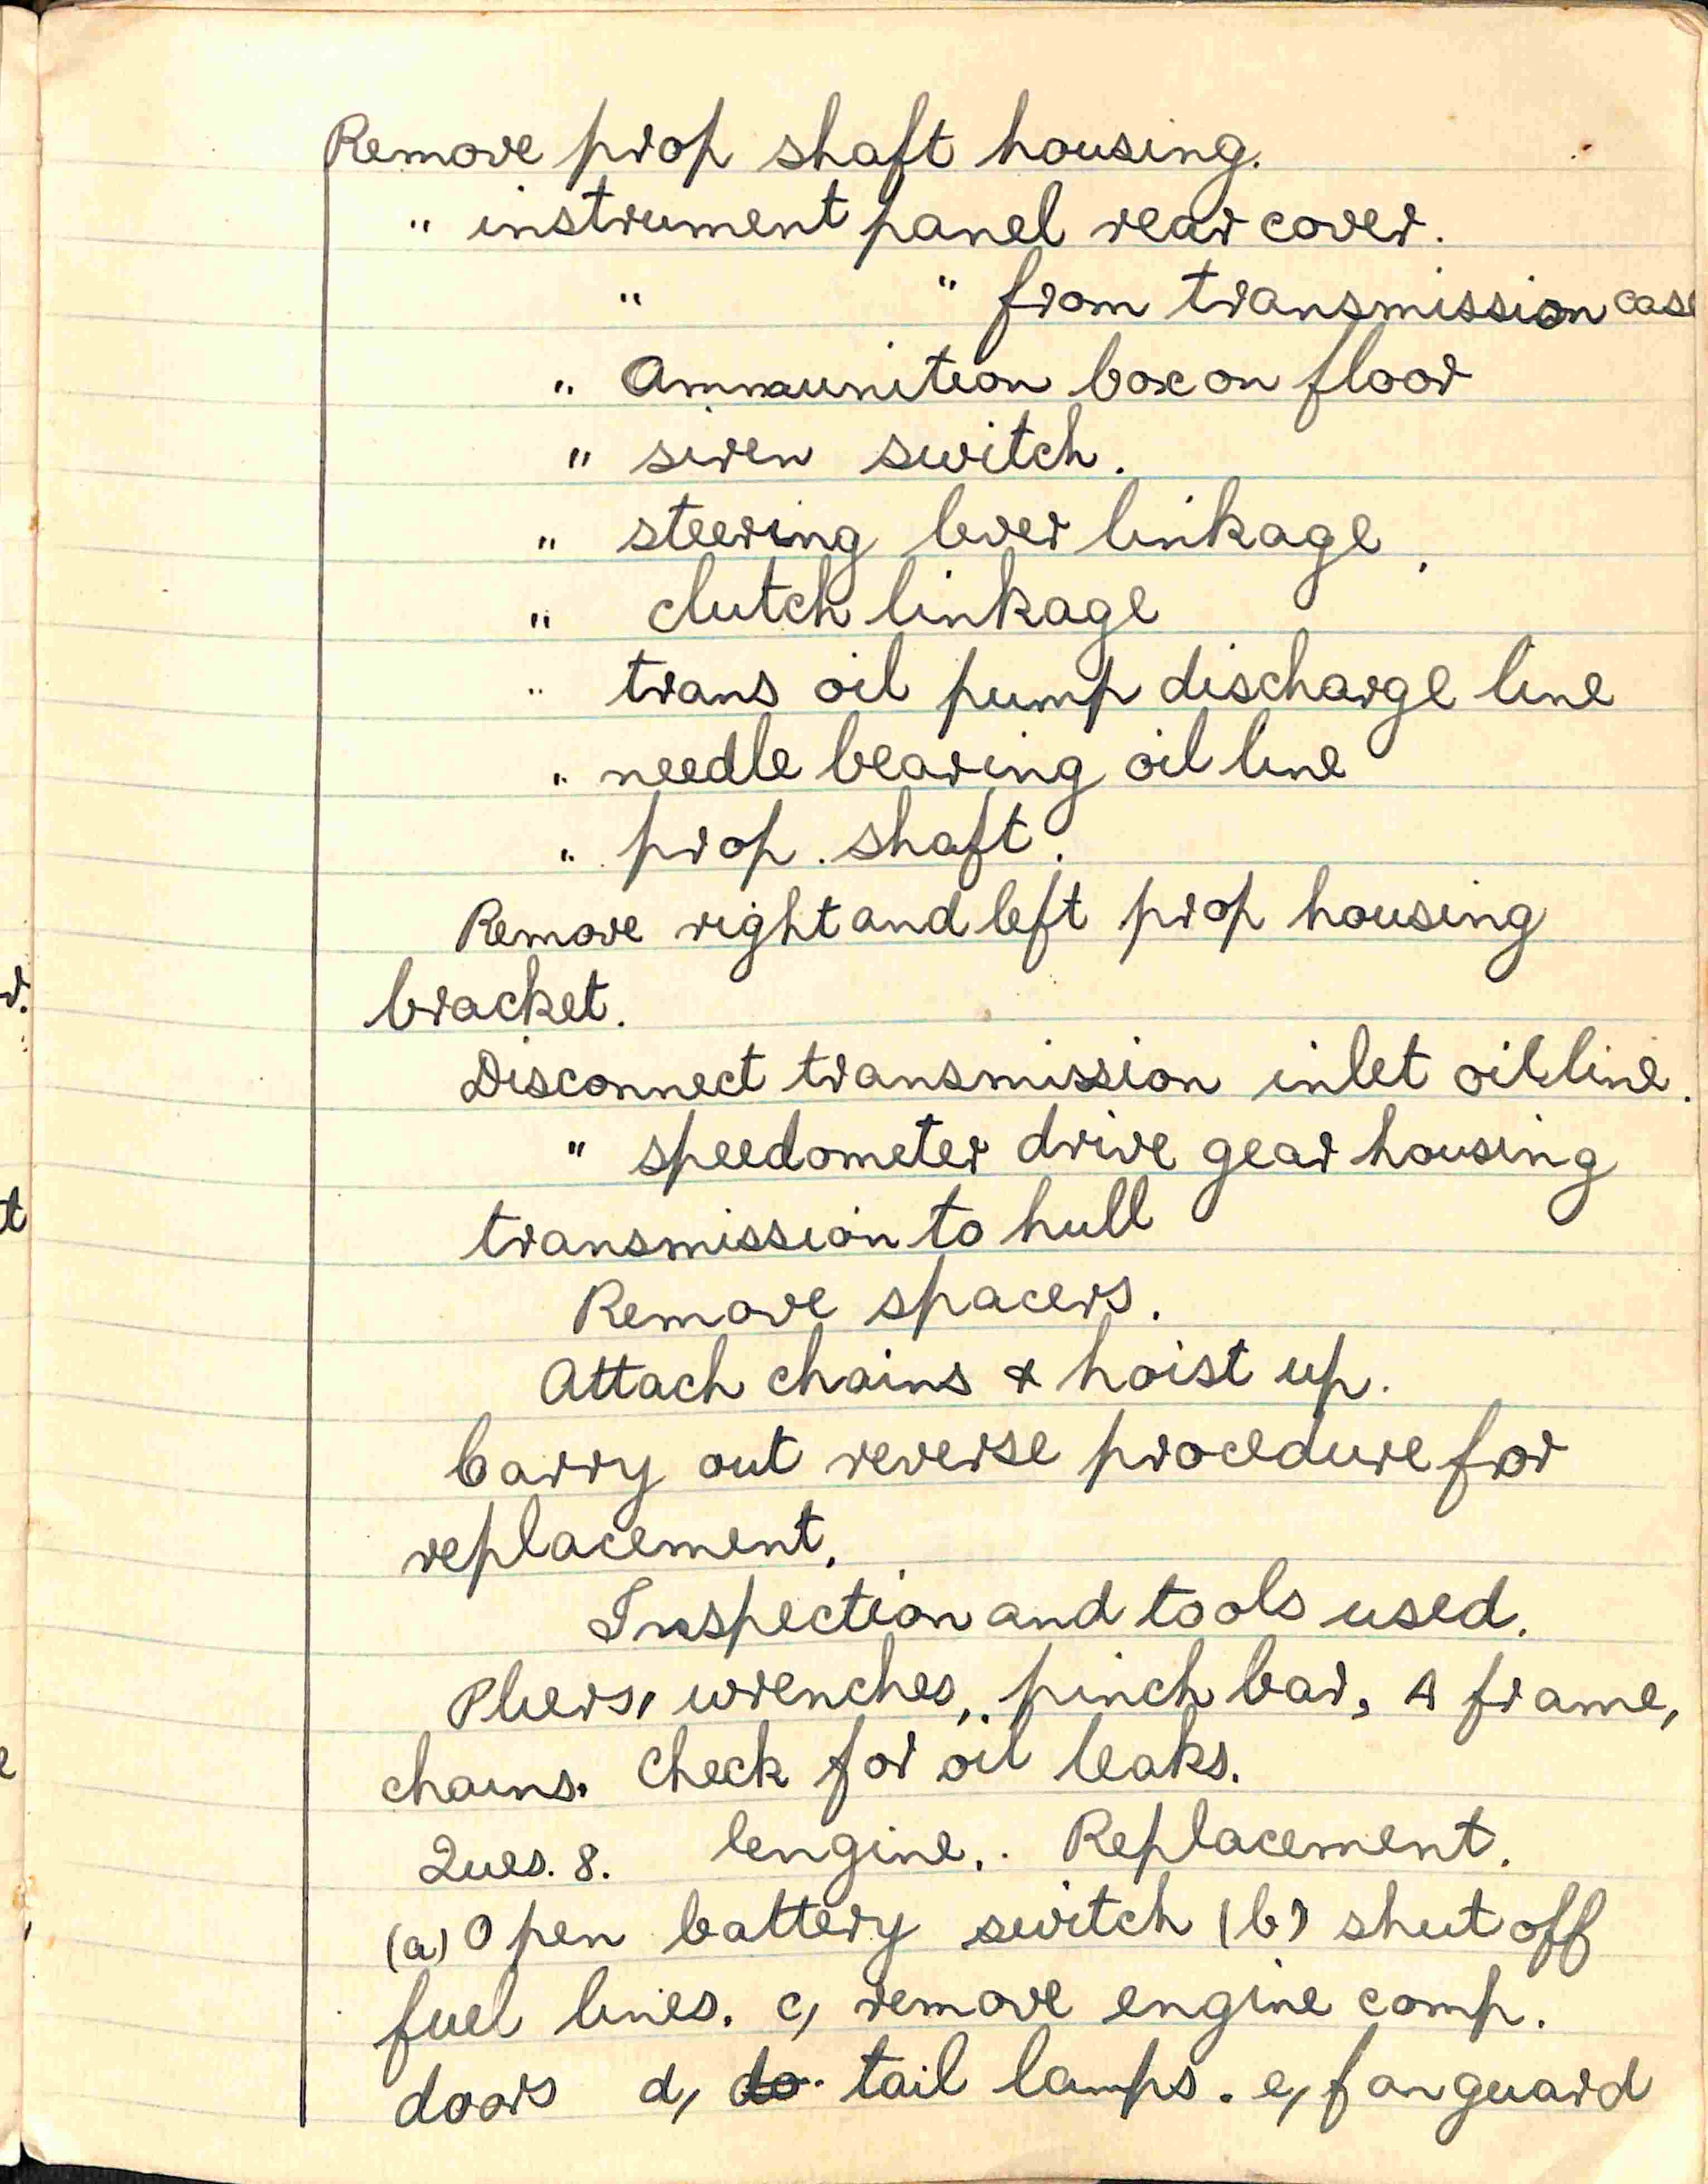 Remove prop shaft housing.
" instrument panel rear cover.
" " from transmission case
" Ammunition box on floor
" siren switch.
" steering lever linkage.
" clutch linkage
" trans oil pump discharge line
" needle bearing oil line
" prop. shaft.
Remove right and left prop housing
bracket.
Disconnect transmission inlet oil line.
" speedometer drive gear housing
transmission to hull
Remove spacers.
Attach chains & hoist up.
Carry out reverse procedure for
replacement.
Inspection and tools used.
Pliers, wrenches, pinch bar, A frame,
chains. Check for oil leaks.
Ques. 8. Engine. Replacement.
(a) Open battery switch (b) shut off
fuel lines. c, remove engine comp.
doors d, do. tail lamps. e, fan guard